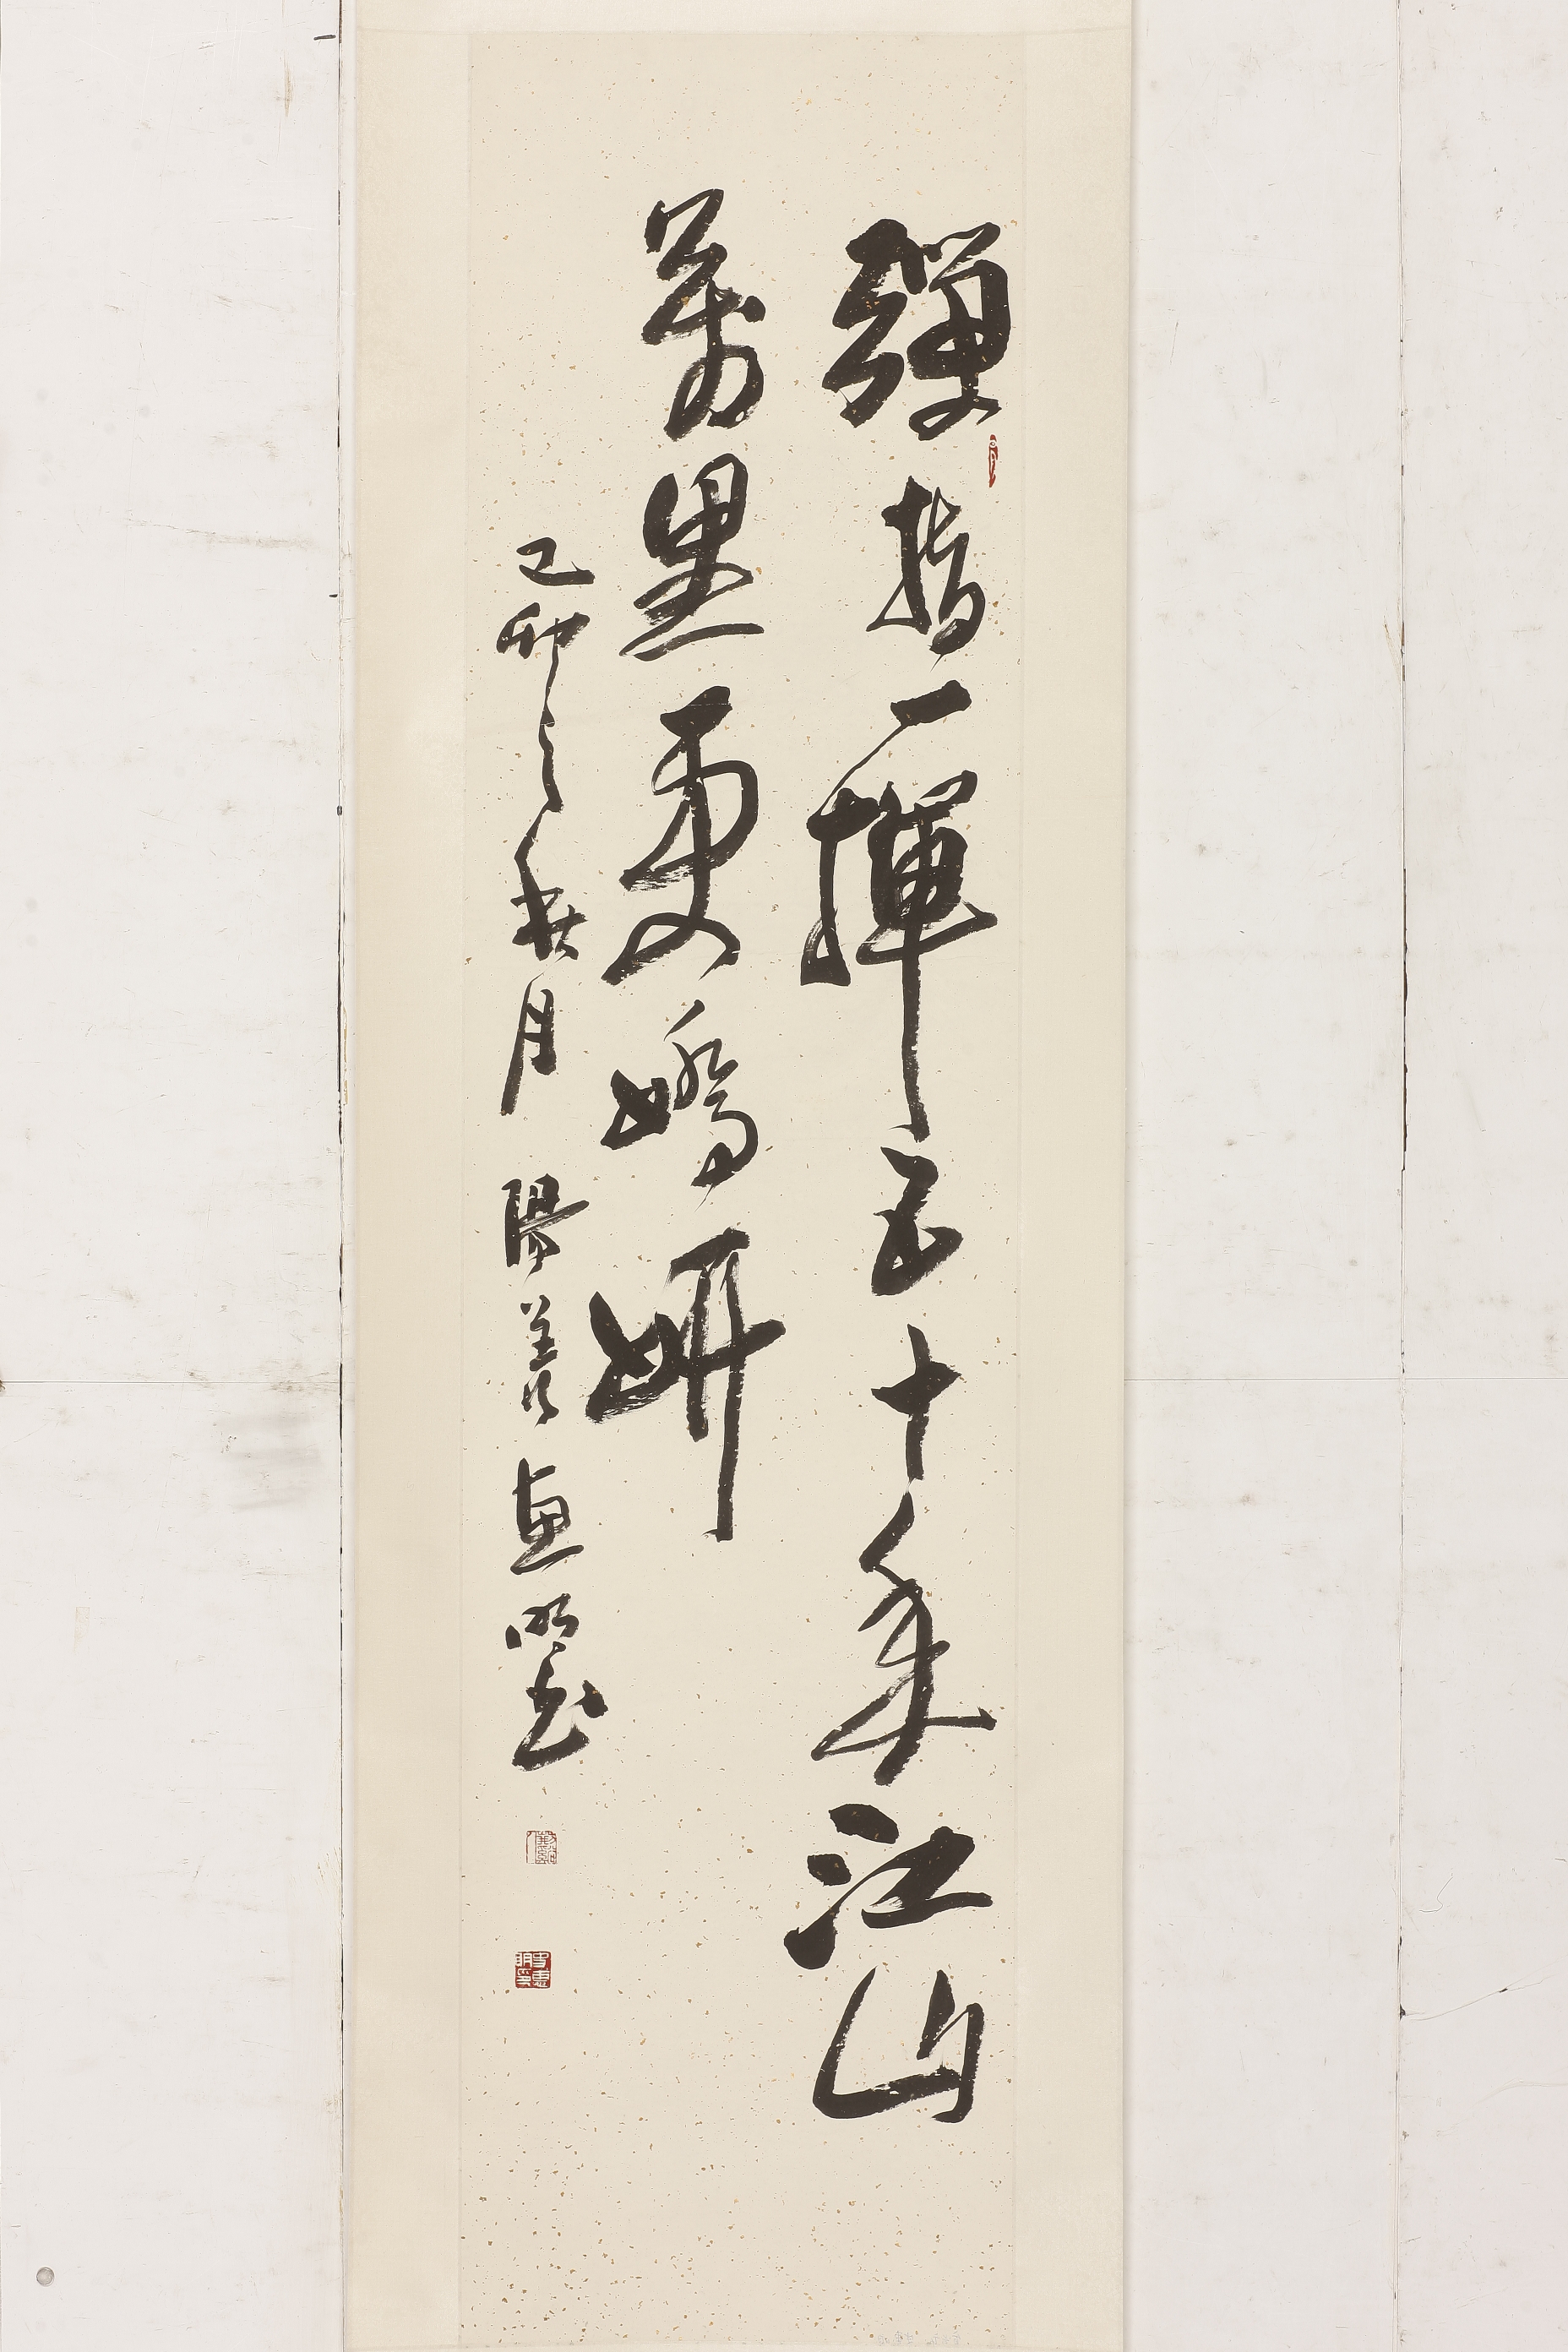 彈指一揮五十年江山
萬里更嬌妍
己卯之秋月 陽羨 惠明書